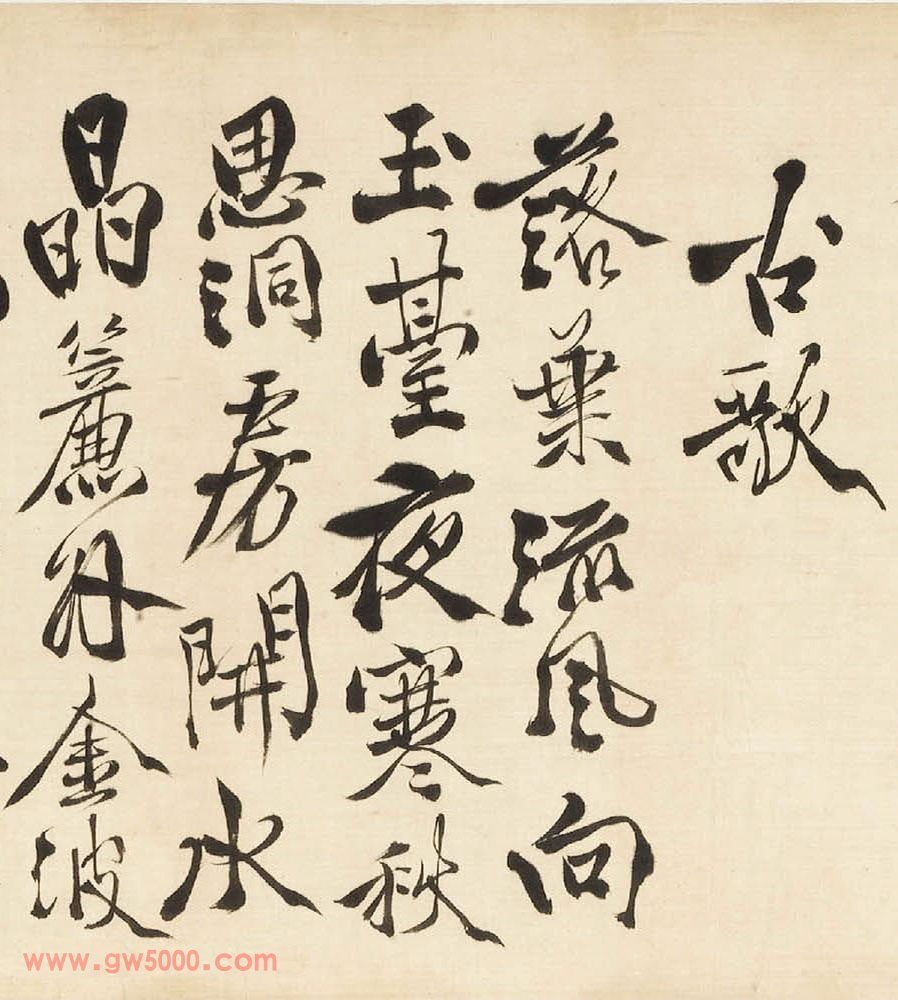 古歌
落葉流風向
玉臺夜寒秋
思洞房開水
晶簾外金波
www.gw5000.com